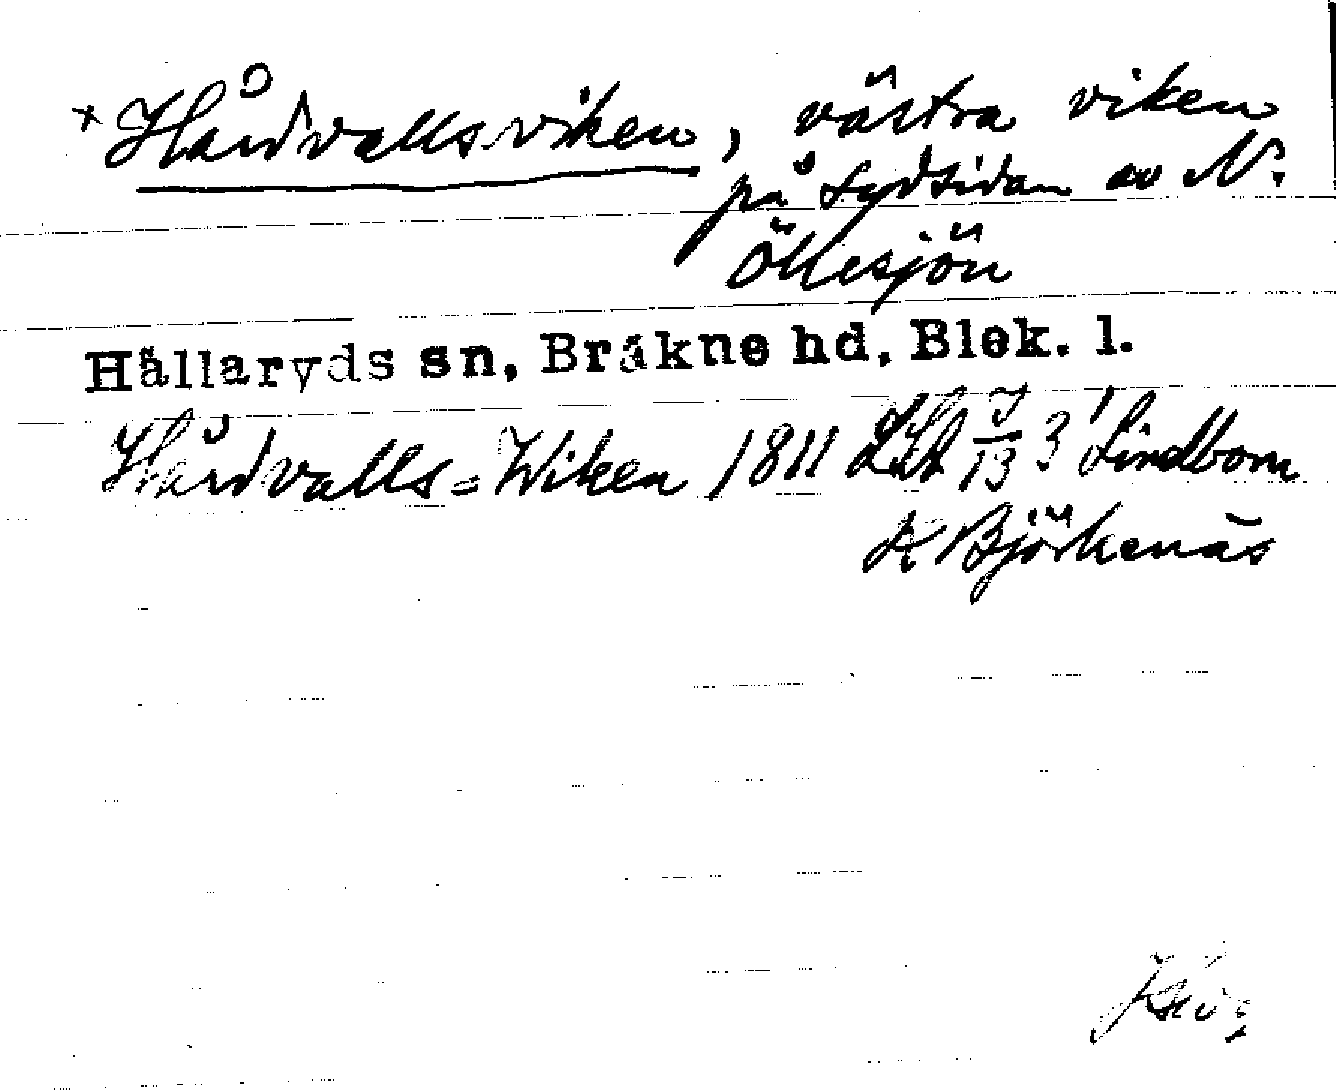 * Hårdvallsviken, västra viken
på sydsidan av N.
Öllesjön
Hällaryds sn, Bräkne hd, Blek. l.
Hårdvalls=Wiken 1811 LSA J/13 3¹ Lindbom
K Björkenäs